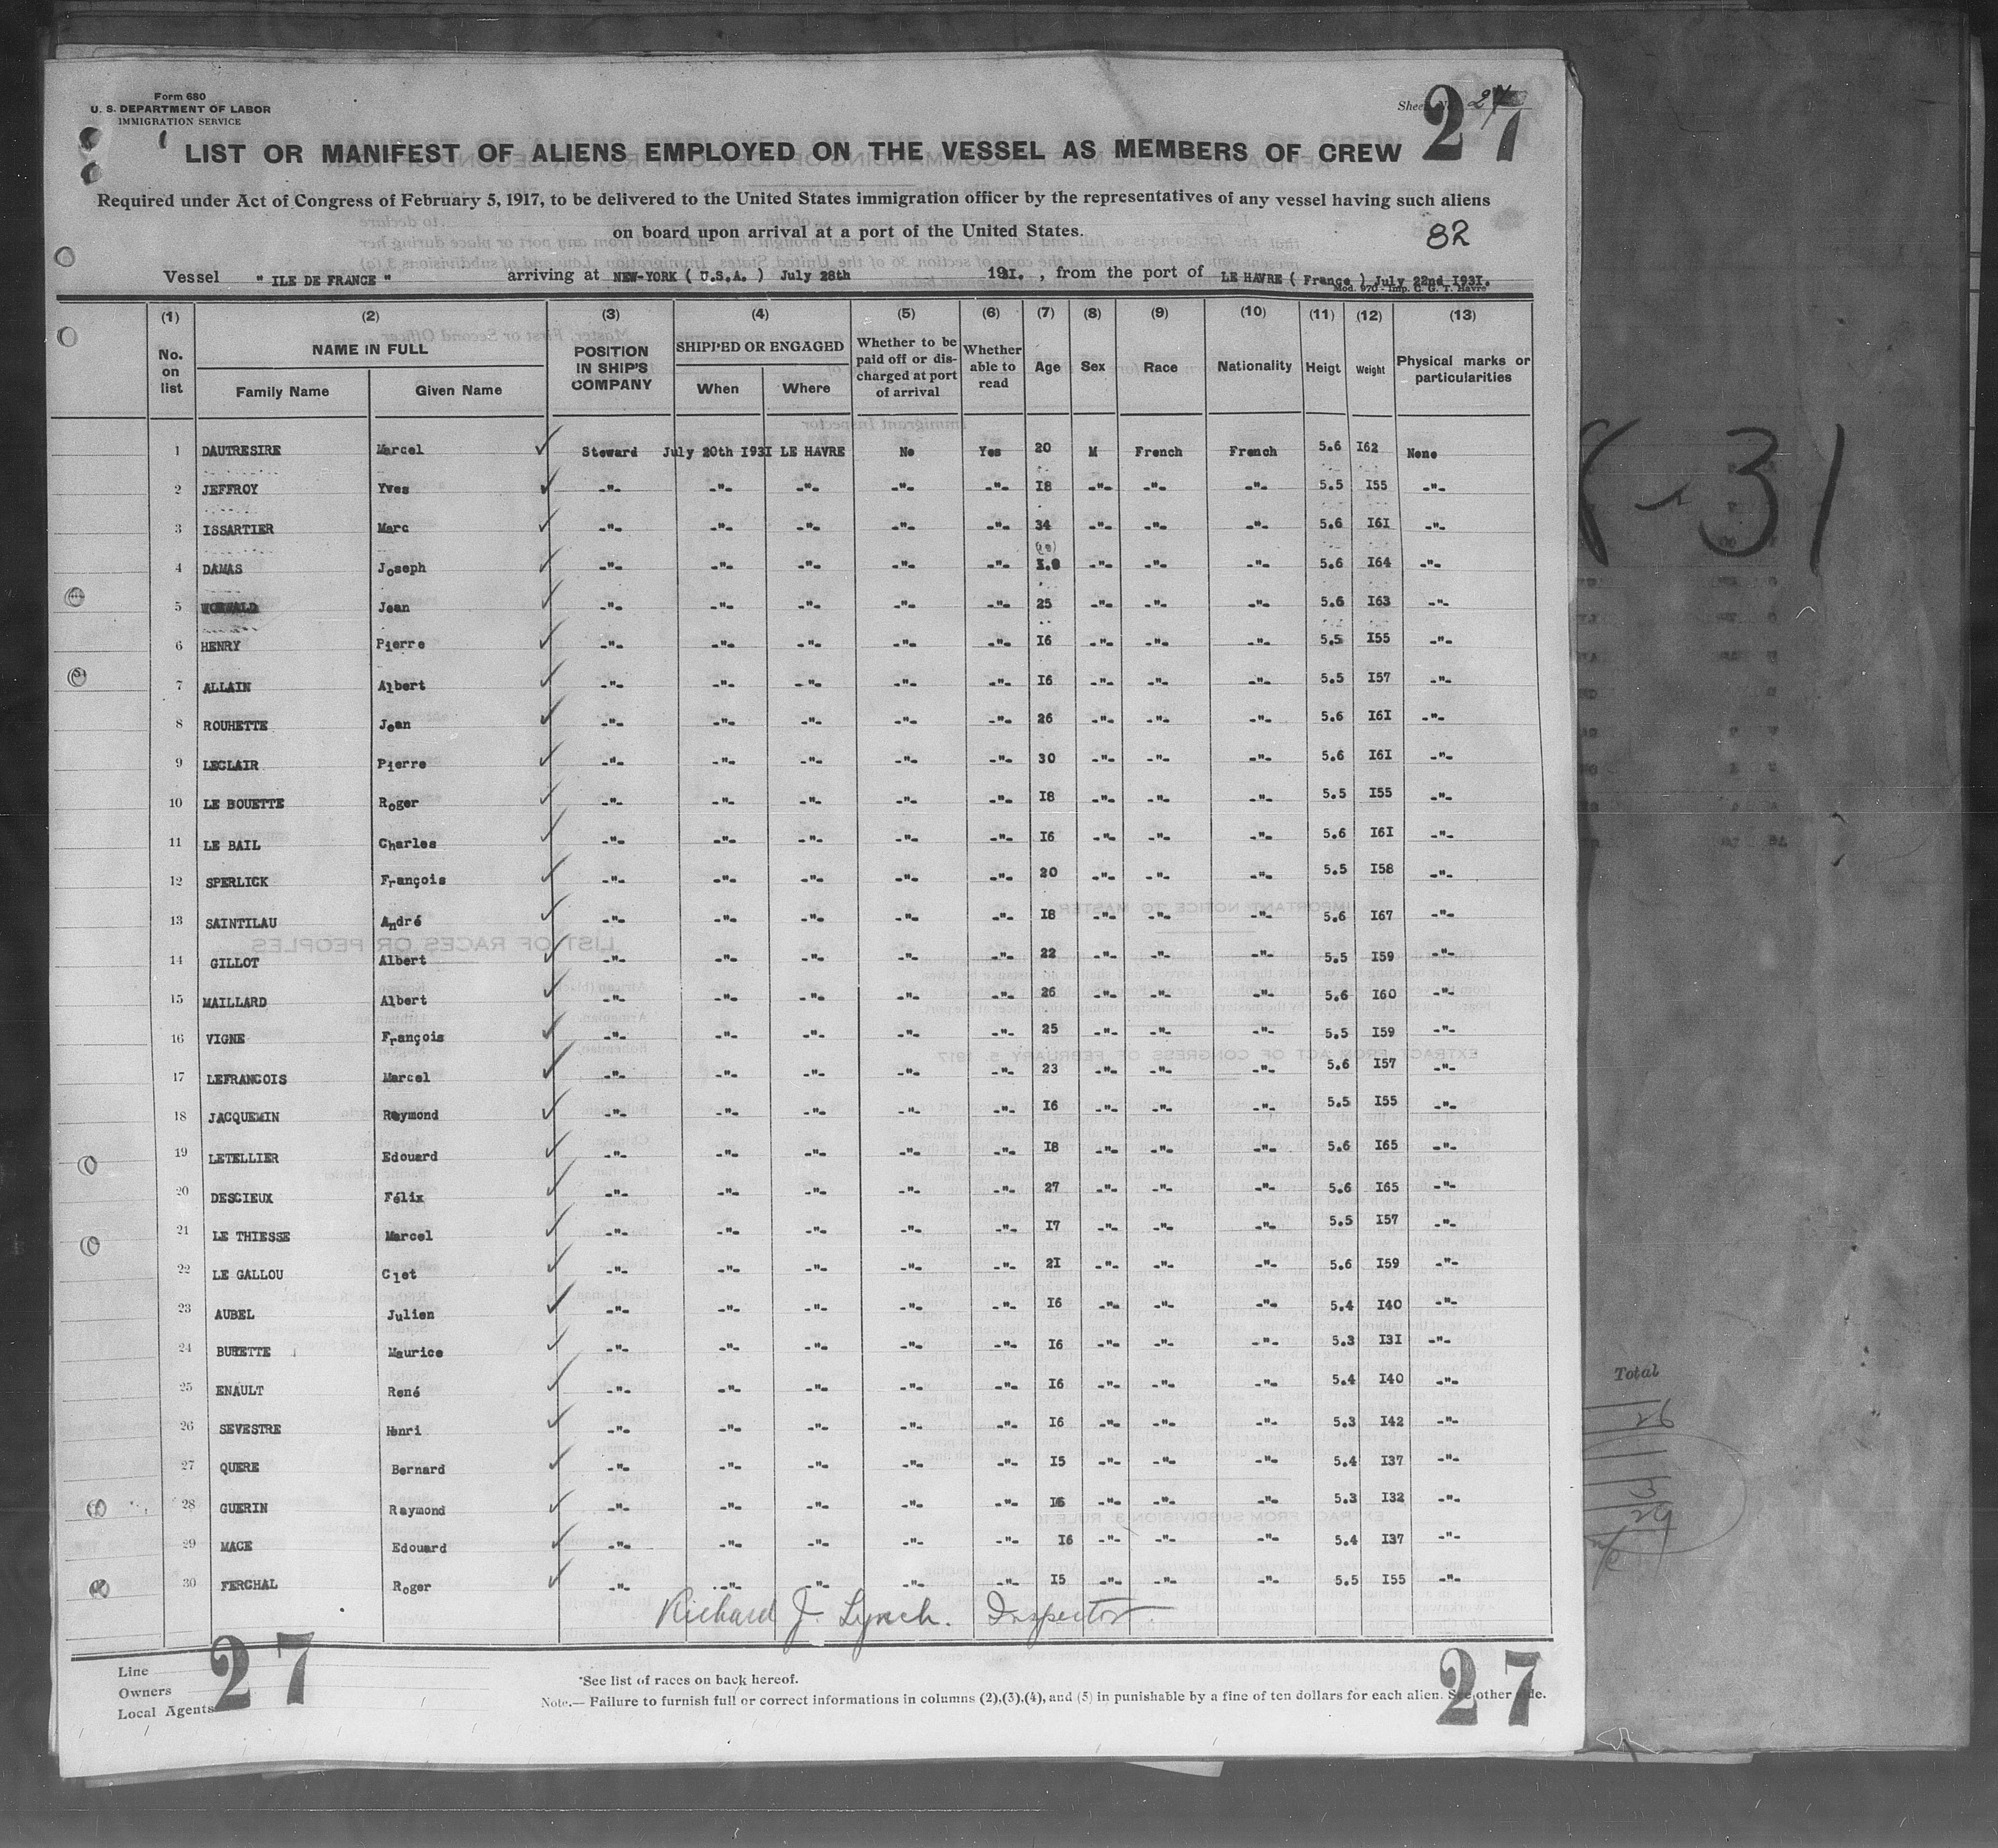 Form 680
U. S. DEPARTMENT OF LABOR
IMMIGRATION SERVICE
Sheet No. 27
27
LIST OR MANIFEST OF ALIENS EMPLOYED ON THE VESSEL AS MEMBERS OF CREW
Required under Act of Congress of February 5, 1917, to be delivered to the United States immigration officer by the representatives of any vessel having such aliens
on board upon arrival at a port of the United States.
82
Vessel " ILE DE FRANCE " arriving at NEW-YORK ( U.S.A. ) July 28th 1931. , from the port of LE HAVRE ( France ) July 22nd I93I.
Mod. 970 - Imp. C. G. T. Havre
(1) (2) (3) (4) (5) (6) (7) (8) (9) (10) (11) (12) (13)
No. on list NAME IN FULL Family Name Given Name POSITION IN SHIP'S COMPANY SHIPPED OR ENGAGED When Where Whether to be paid off or discharged at port of arrival Whether able to read Age Sex Race Nationality Heigt Weight Physical marks or particularities
1 DAUTRESIRE Marcel ✓ Steward July 20th I93I LE HAVRE No Yes 20 M French French 5.6 I62 None
2 JEFFROY Yves ✓ -"- -"- -"- -"- -"- I8 -"- -"- -"- 5.5 I55 -"-
3 ISSARTIER Marc ✓ -"- -"- -"- -"- -"- 34 -"- -"- -"- 5.6 I6I -"-
4 DAMAS Joseph ✓ -"- -"- -"- -"- -"- -"- -"- -"- 5.6 I64 -"-
5 Jean ✓ -"- -"- -"- -"- -"- 25 -"- -"- -"- 5.6 I63 -"-
6 HENRY Pierre ✓ -"- -"- -"- -"- -"- I6 -"- -"- -"- 5.5 I55 -"-
7 ALLAIN Albert ✓ -"- -"- -"- -"- -"- I6 -"- -"- -"- 5.5 I57 -"-
8 ROUHETTE Jean ✓ -"- -"- -"- -"- -"- 26 -"- -"- -"- 5.6 I6I -"-
9 LECLAIR Pierre ✓ -"- -"- -"- -"- -"- 30 -"- -"- -"- 5.6 I6I -"-
10 LE BOUETTE Roger ✓ -"- -"- -"- -"- -"- I8 -"- -"- -"- 5.5 I55 -"-
11 LE BAIL Charles ✓ -"- -"- -"- -"- -"- I6 -"- -"- -"- 5.6 I6I -"-
12 SPERLICK François ✓ -"- -"- -"- -"- -"- 20 -"- -"- -"- 5.5 I58 -"-
13 SAINTILAU André ✓ -"- -"- -"- -"- -"- I8 -"- -"- -"- 5.6 I67 -"-
14 GILLOT Albert ✓ -"- -"- -"- -"- -"- 22 -"- -"- -"- 5.5 I59 -"-
15 MAILLARD Albert ✓ -"- -"- -"- -"- -"- 26 -"- -"- -"- 5.6 I60 -"-
16 VIGNE François ✓ -"- -"- -"- -"- -"- 25 -"- -"- -"- 5.5 I59 -"-
17 LEFRANCOIS Marcel ✓ -"- -"- -"- -"- -"- 23 -"- -"- -"- 5.6 I57 -"-
18 JACQUEMIN Raymond ✓ -"- -"- -"- -"- -"- I6 -"- -"- -"- 5.5 I55 -"-
19 LETELLIER Edouard ✓ -"- -"- -"- -"- -"- I8 -"- -"- -"- 5.6 I65 -"-
20 DESCIEUX Félix ✓ -"- -"- -"- -"- -"- 27 -"- -"- -"- 5.6 I65 -"-
21 LE THIESSE Marcel ✓ -"- -"- -"- -"- -"- I7 -"- -"- -"- 5.5 I57 -"-
22 LE GALLOU Clet ✓ -"- -"- -"- -"- -"- 2I -"- -"- -"- 5.6 I59 -"-
23 AUBEL Julien ✓ -"- -"- -"- -"- -"- I6 -"- -"- -"- 5.4 I40 -"-
24 BURETTE Maurice ✓ -"- -"- -"- -"- -"- I6 -"- -"- -"- 5.3 I3I -"-
25 ENAULT René ✓ -"- -"- -"- -"- -"- I6 -"- -"- -"- 5.4 I40 -"-
26 SEVESTRE Henri ✓ -"- -"- -"- -"- -"- I6 -"- -"- -"- 5.3 I42 -"-
27 QUERE Bernard ✓ -"- -"- -"- -"- -"- I5 -"- -"- -"- 5.4 I37 -"-
28 GUERIN Raymond ✓ -"- -"- -"- -"- -"- I6 -"- -"- -"- 5.3 I32 -"-
29 MACE Edouard ✓ -"- -"- -"- -"- -"- I6 -"- -"- -"- 5.4 I37 -"-
30 FERCHAL Roger ✓ -"- -"- -"- -"- -"- I5 -"- -"- -"- 5.5 I55 -"-
Richard J. Lynch. Inspector
27 27
Line
Owners
Local Agents
*See list of races on back hereof.
Note.— Failure to furnish full or correct informations in columns (2),(3),(4), and (5) in punishable by a fine of ten dollars for each alien. See other side.
8-31
Total
26
3
29